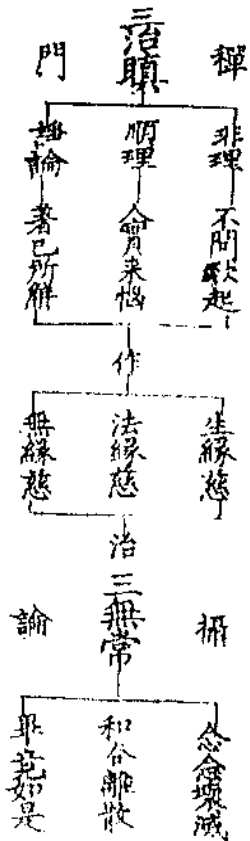 三治瞋
禪門
非理 不問欻起
順理 人實来惱
諍論 著己所解
作
生縁慈
法縁慈
無縁慈
治
三無常
攝論
念念壞滅
和合離散
畢竟如是